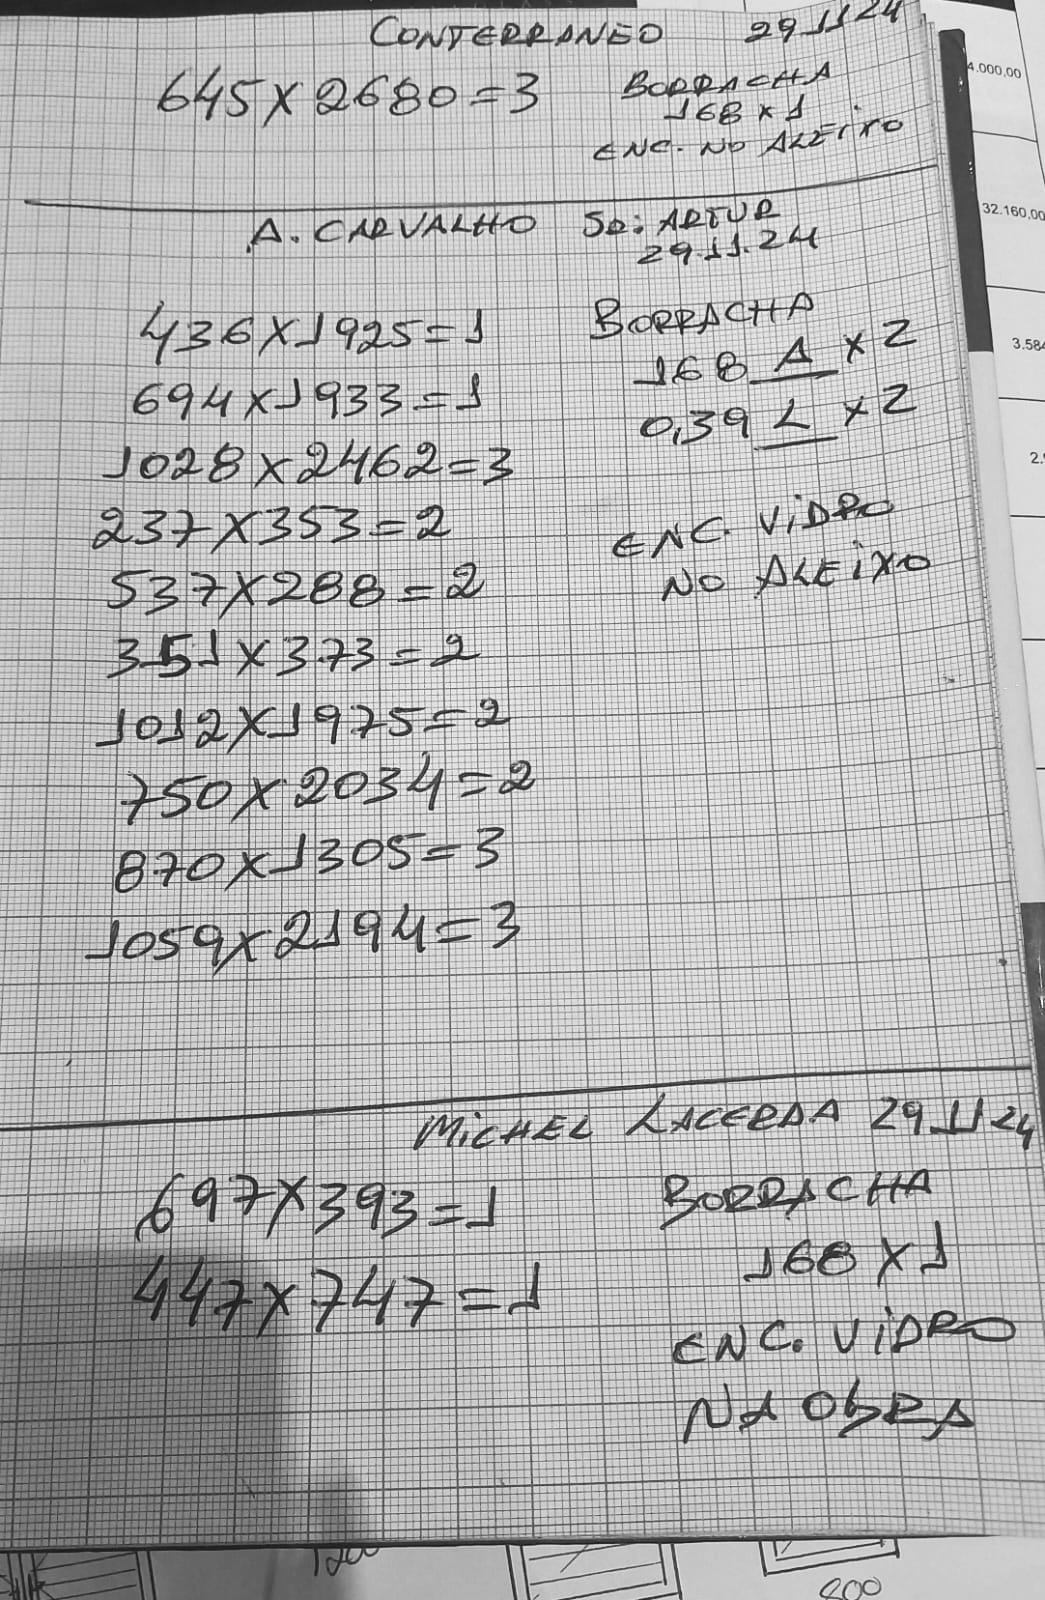 CONTERRANEO 29 11 24
645x2680=3
BORRACHA
168 x 1
ENC. NO ALEIXO
A. CARVALHO SR: ARTUR
29.11.24
436x1925=1
694x1933=1
1028x2462=3
237x353=2
537x288=2
351x373=2
1012x1975=2
750x2034=2
870x1305=3
1059x2194=3
BORRACHA
168 A x 2
0,39 L x 2
ENC. VIDRO
NO ALEIXO
MICHEL LACERDA 29 11 24
697x393=1
447x747=1
BORRACHA
168 x 1
ENC. VIDRO
NA OBRA
4.000,00
32.160,00
3.584
2.
1200
800